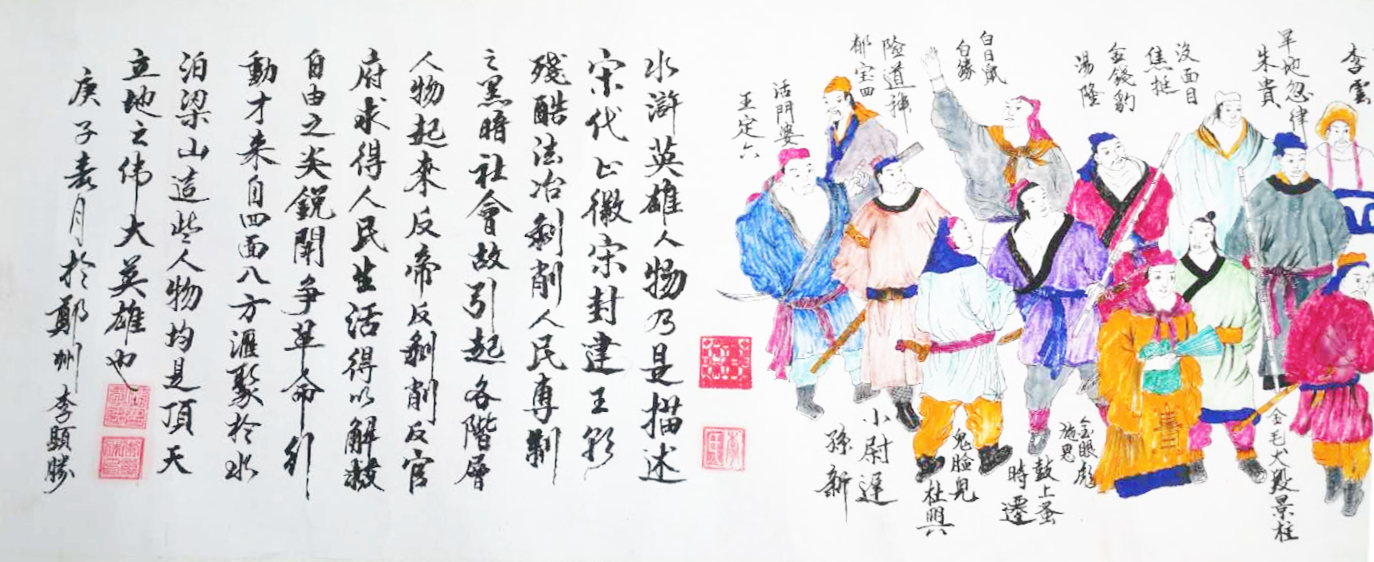 李雲
旱地忽律
朱貴
没面目
焦挺
金錢豹
湯隆
白日鼠
白勝
險道神
郁宝四
活閃婆
王定六
金毛犬段景柱
金眼彪
施恩
鼓上蚤
時遷
鬼脸兒
杜興
小尉遲
孫新
水滸英雄人物乃是描述
宋代上徽宋封建王朝
殘酷法治剝削人民專制
之黑暗社會故引起各階層
人物起來反帝反剥削反官
府求得人民生活得以解救
自由之尖鋭鬥争革命行
動才来自四面八方滙聚於水
泊梁山這些人物均是頂天
立地之伟大英雄也
庚子春月於鄭州李顯勝